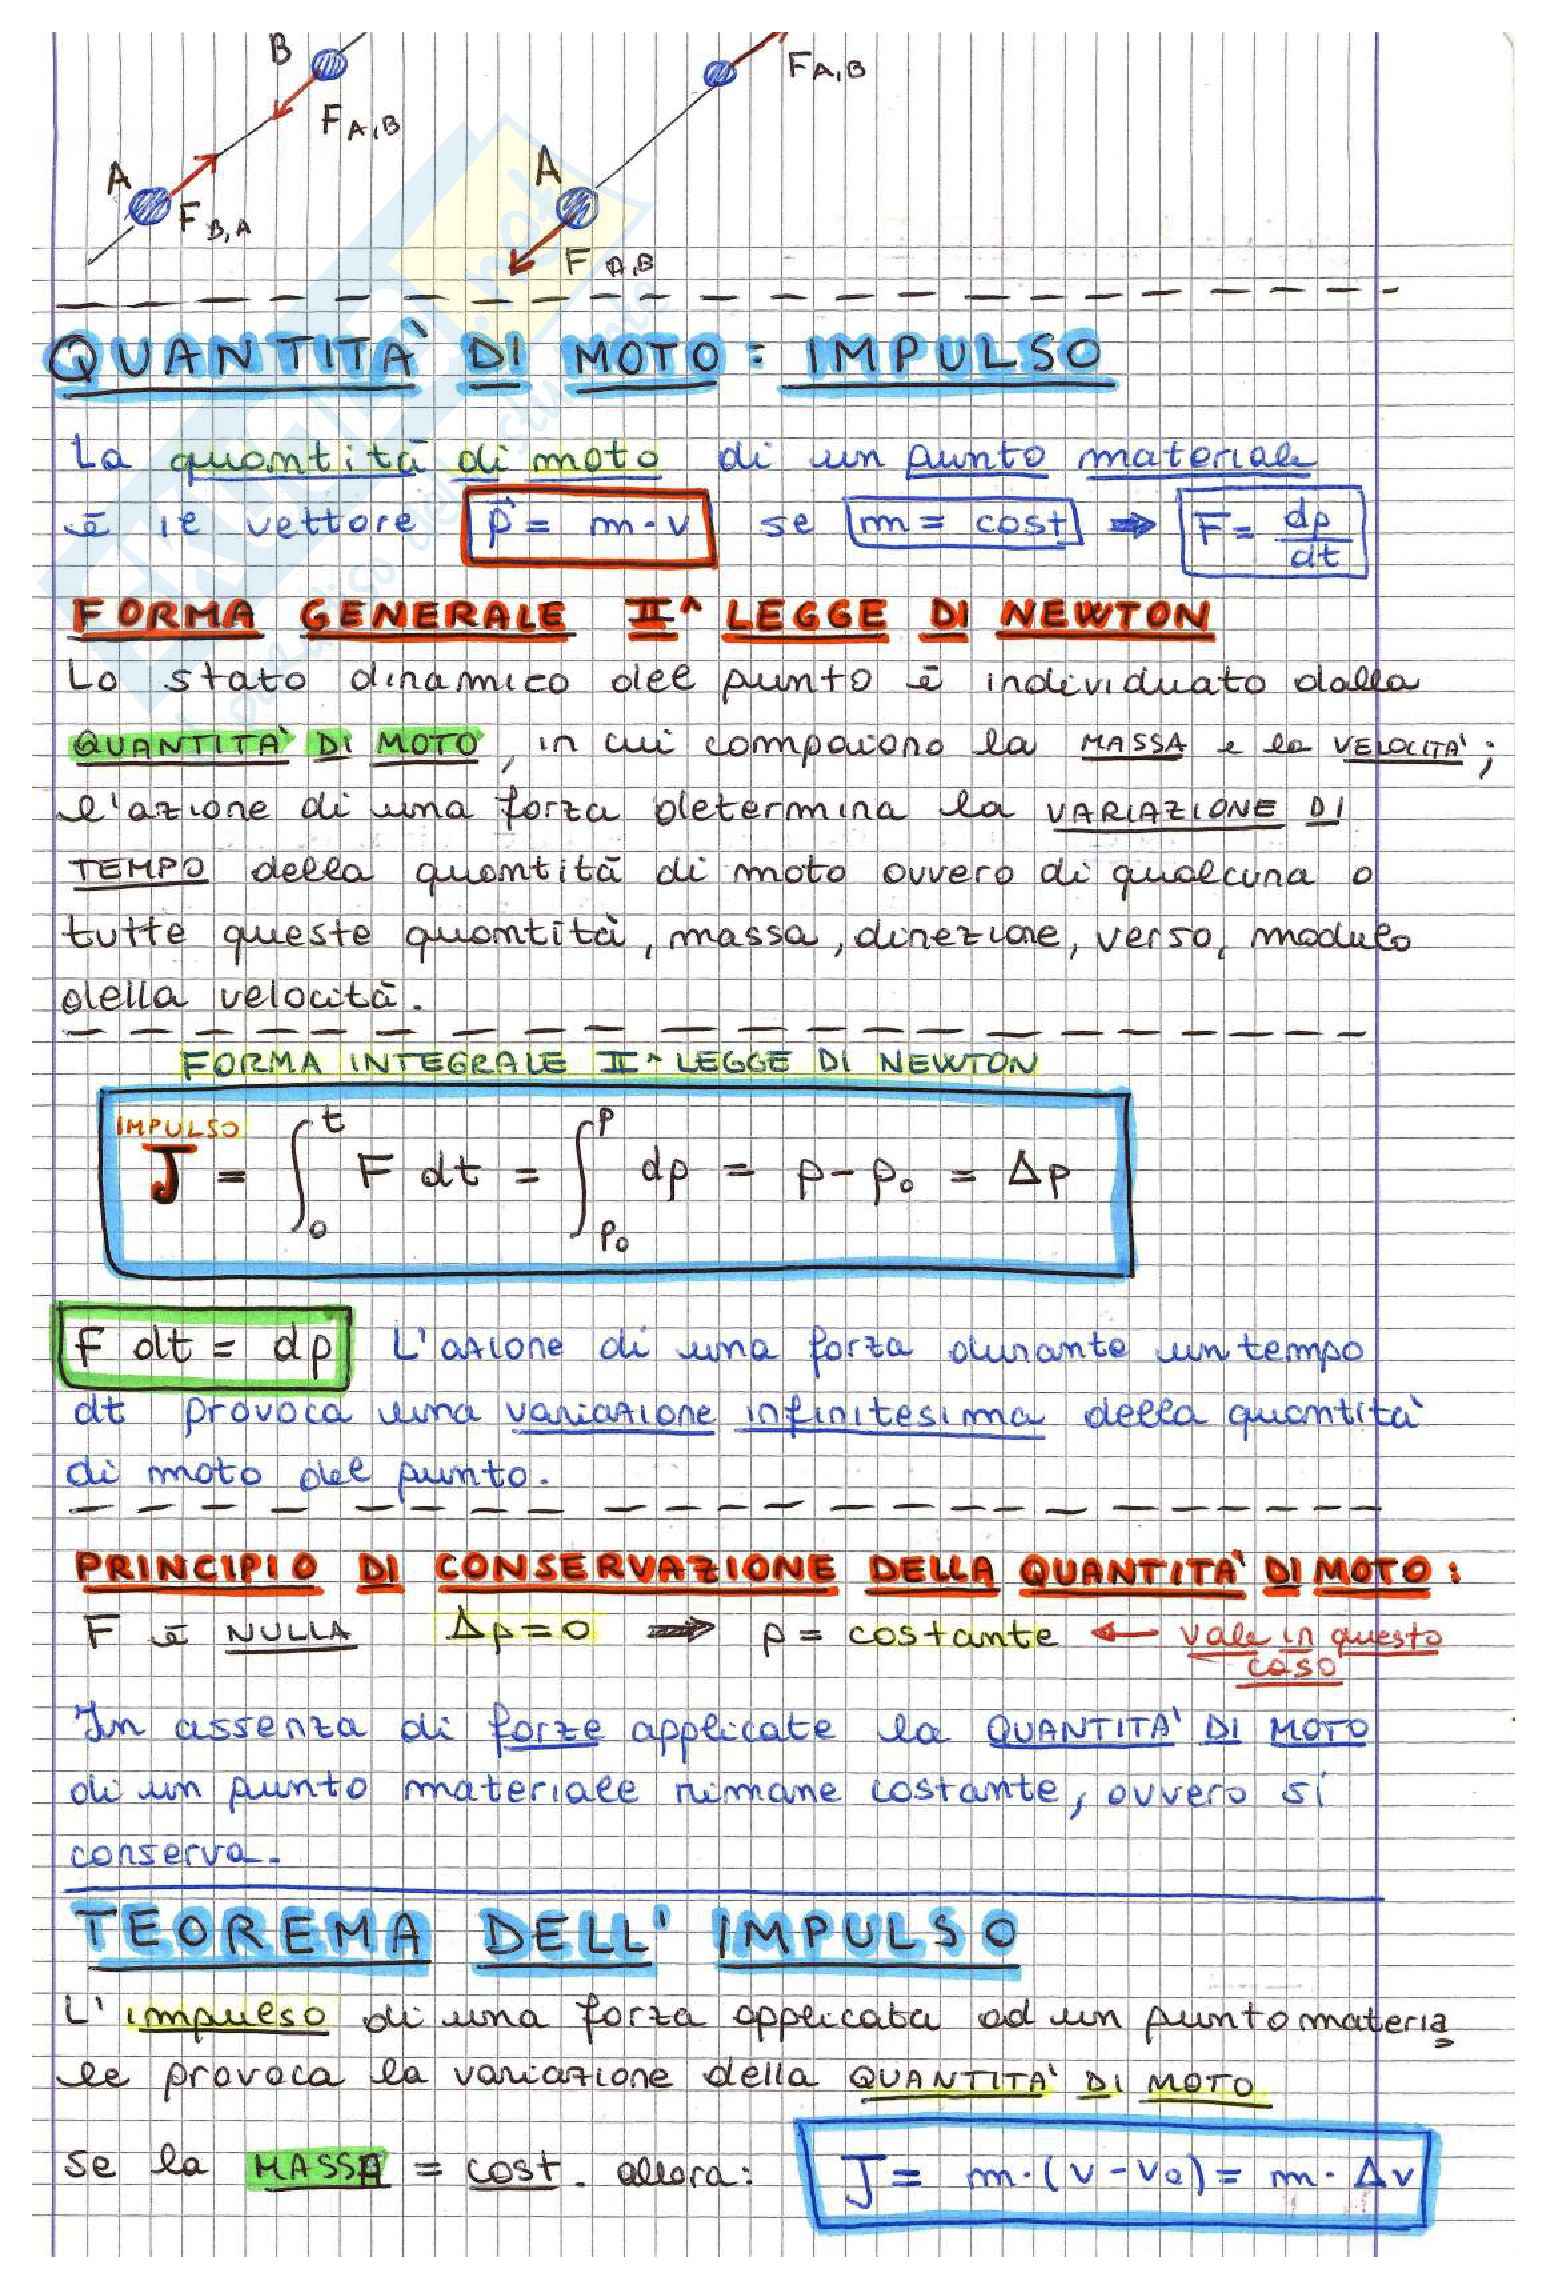 B
F A,B
F A,B
A
F B,A
A
F A,B
QUANTITA' DI MOTO : IMPULSO
La quantità di moto di un punto materiale
è il vettore p⃗ = m·v se m = cost ⇒ F = dp/dt
FORMA GENERALE II^ LEGGE DI NEWTON
Lo stato dinamico del punto è individuato dalla
QUANTITA' DI MOTO, in cui compaiono la MASSA e la VELOCITA';
l'azione di una forza determina la VARIAZIONE DI
TEMPO della quantità di moto ovvero di qualcuna o
tutte queste quantità, massa, direzione, verso, modulo
della velocità.
FORMA INTEGRALE II^ LEGGE DI NEWTON
IMPULSO
J = ∫₀ᵗ F dt = ∫ₚ₀ᵖ dp = p - p₀ = Δp
F dt = dp L'azione di una forza durante un tempo
dt provoca una variazione infinitesima della quantità
di moto del punto.
PRINCIPIO DI CONSERVAZIONE DELLA QUANTITA' DI MOTO:
F è NULLA Δp=0 ⇒ p = costante ← vale in questo
caso
In assenza di forze applicate la QUANTITA' DI MOTO
di un punto materiale rimane costante, ovvero si
conserva.
TEOREMA DELL' IMPULSO
L' impulso di una forza applicata ad un punto materia
le provoca la variazione della QUANTITA' DI MOTO
se la MASSA = cost. allora: J = m·(v-v₀) = m·Δv